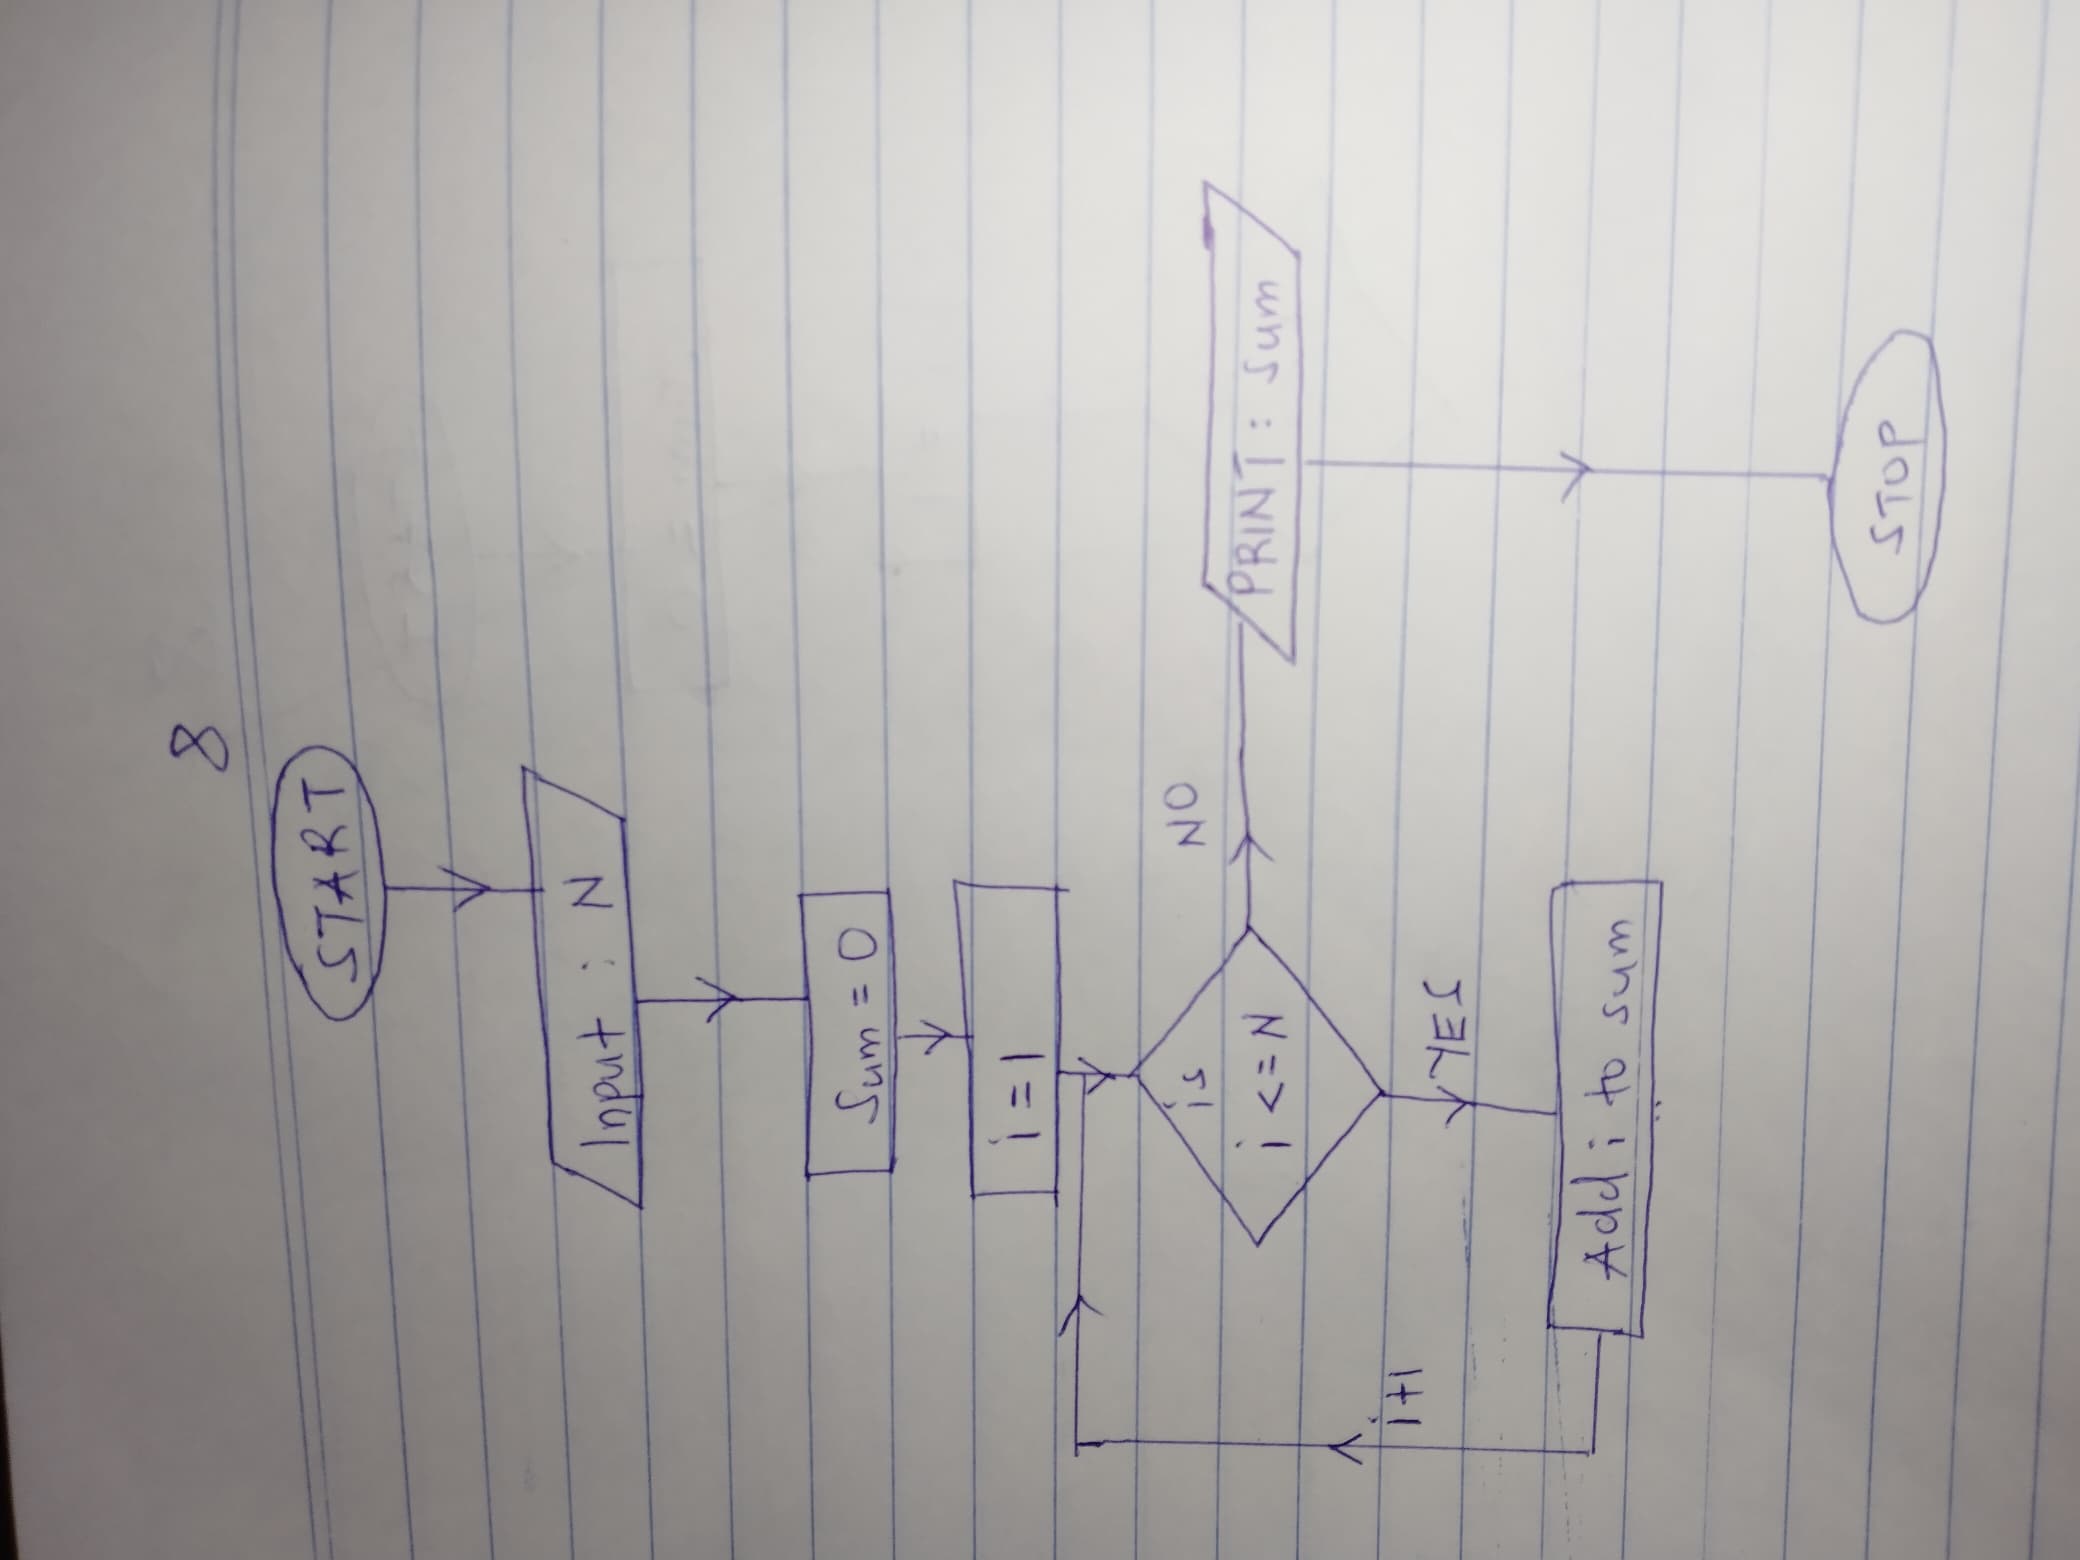 8
START
Input : N
Sum = 0
i = 1
is
i <= N
NO
PRINT : Sum
i+1
YES
Add i to sum
STOP